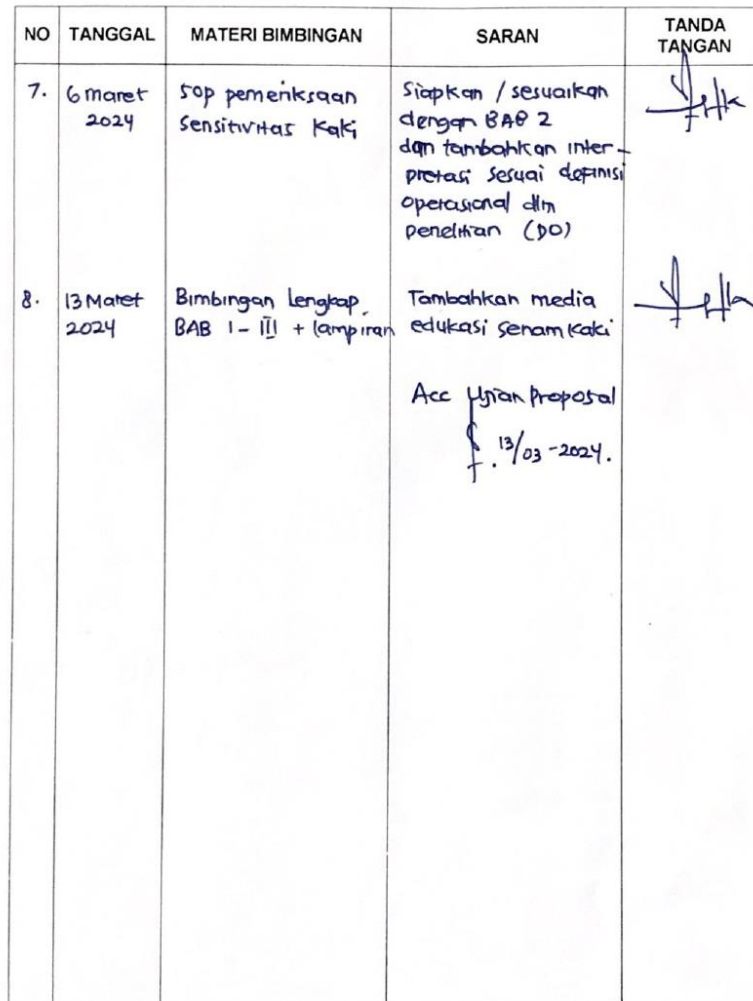 NO TANGGAL MATERI BIMBINGAN SARAN TANDA TANGAN
7. 6 maret 2024
SOP pemeriksaan
Sensitivitas Kaki
Siapkan / sesuaikan
dengan BAB 2
dan tambahkan inter-
pretasi sesuai definisi
operasional dlm
penelitian (DO)
8. 13 Maret 2024
Bimbingan lengkap
BAB I - III + lampiran
Tambahkan media
edukasi senam kaki
Acc Ujian proposal
13/03-2024.